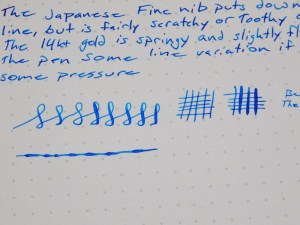 The Japanese Fine nib puts down
line, but is fairly scratchy or Toothy
The 14kt gold is springy and slightly fl
the pen some line variation if
some pressure
Be
The